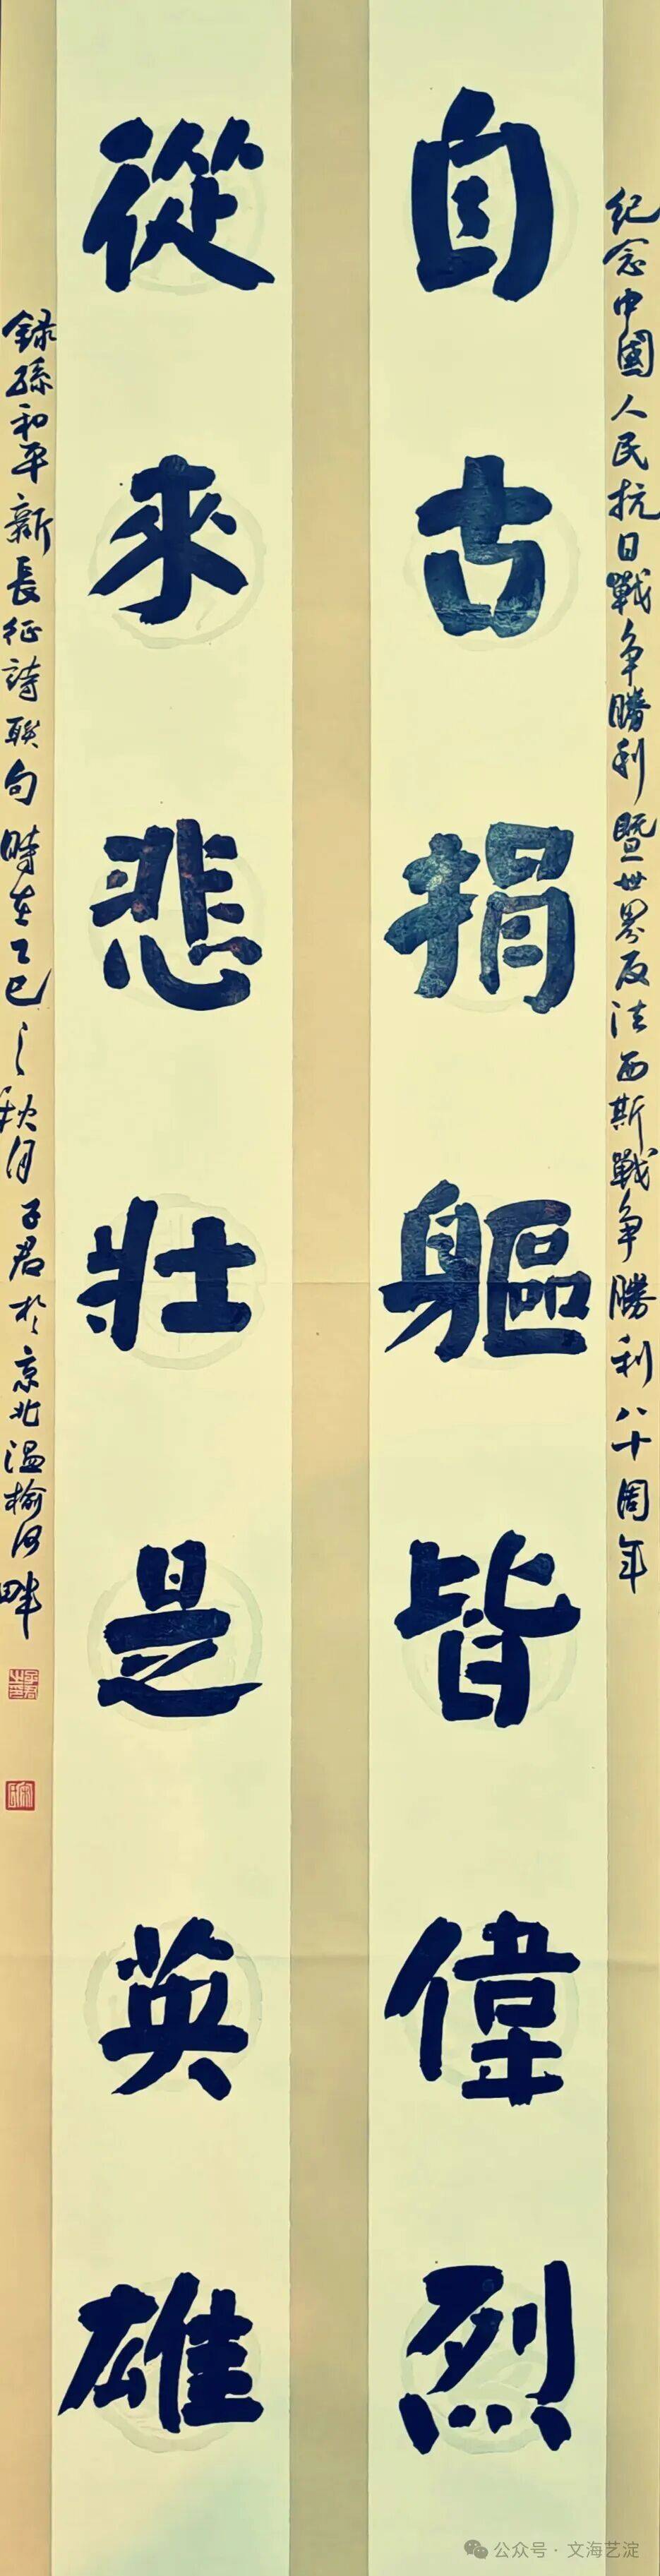 纪念中國人民抗日戰争勝利暨世界反法西斯戰争勝利八十周年
自古捐軀皆偉烈
從來悲壯是英雄
録孫和平新長征詩联句時在乙巳之秋月子君於京北温榆河畔
公众号·文海艺淀